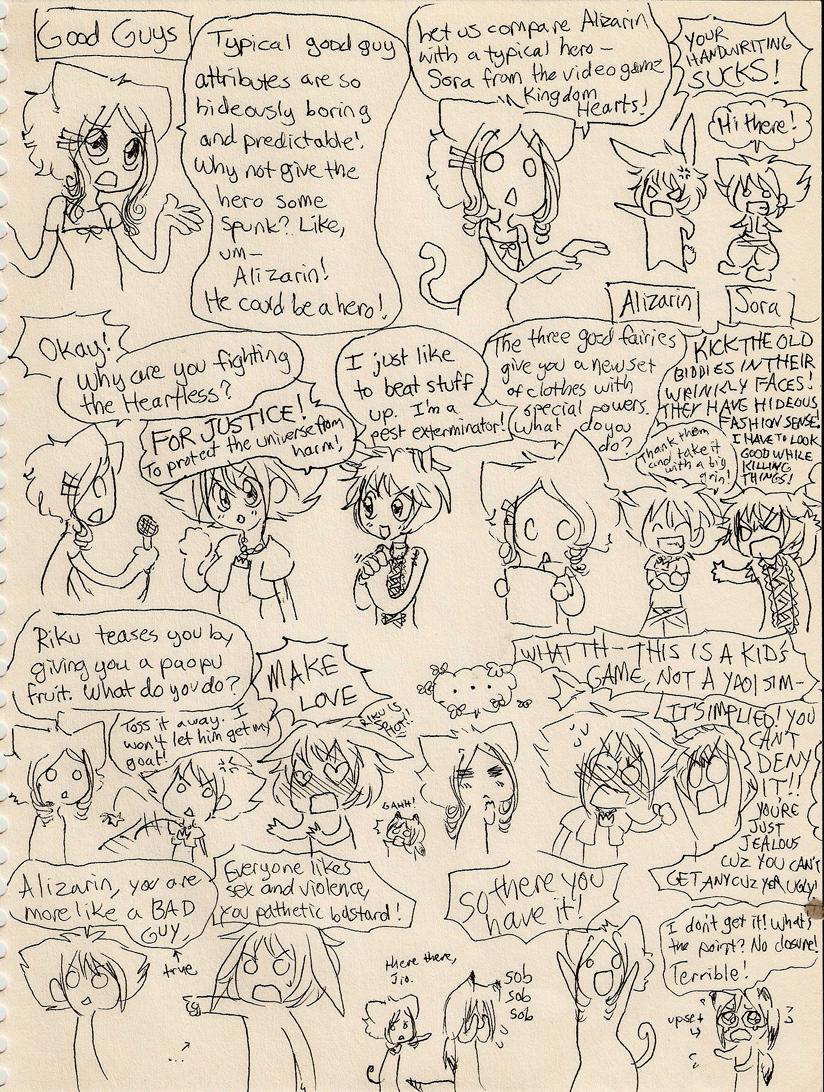 Good Guys
Typical good guy
attributes are so
hideously boring
and predictable!
Why not give the
hero some
spunk? Like,
um—
Alizarin!
He could be a hero!
Let us compare Alizarin
with a typical hero —
Sora from the video game
Kingdom
Hearts!
YOUR
HANDWRITING
SUCKS!
Hi there!
Alizarin
Sora
Okay!
Why are you fighting
the Heartless?
FOR JUSTICE!
To protect the universe from
harm!
I just like
to beat stuff
up. I'm a
pest exterminator!
The three good fairies
give you a new set
of clothes with
special powers.
What do you
do?
Thank them
and take it
with a big
grin!
KICK THE OLD
BIDDIES IN THEIR
WRINKLY FACES!
THEY HAVE HIDEOUS
FASHION SENSE!
I HAVE TO LOOK
GOOD WHILE
KILLING
THINGS!
Riku teases you by
giving you a paopu
fruit. What do you do?
Toss it away. I
won't let him get my
goat!
MAKE
LOVE
RIKU IS
HOT!
GAHH!
...
WHAT TH— THIS IS A KID'S
GAME, NOT A YAOI SIM—
IT'S IMPLIED! YOU
CAN'T
DENY
IT!!
YOU'RE
JUST
JEALOUS
CUZ YOU CAN'T
GET ANY CUZ YER UGLY!
Alizarin, you are
more like a BAD
GUY.
true
Everyone likes
sex and violence,
you pathetic bastard!
...
there there,
Jio.
sob
sob
sob
So there you
have it!
I don't get it! What's
the point? No closure!
Terrible!
upset